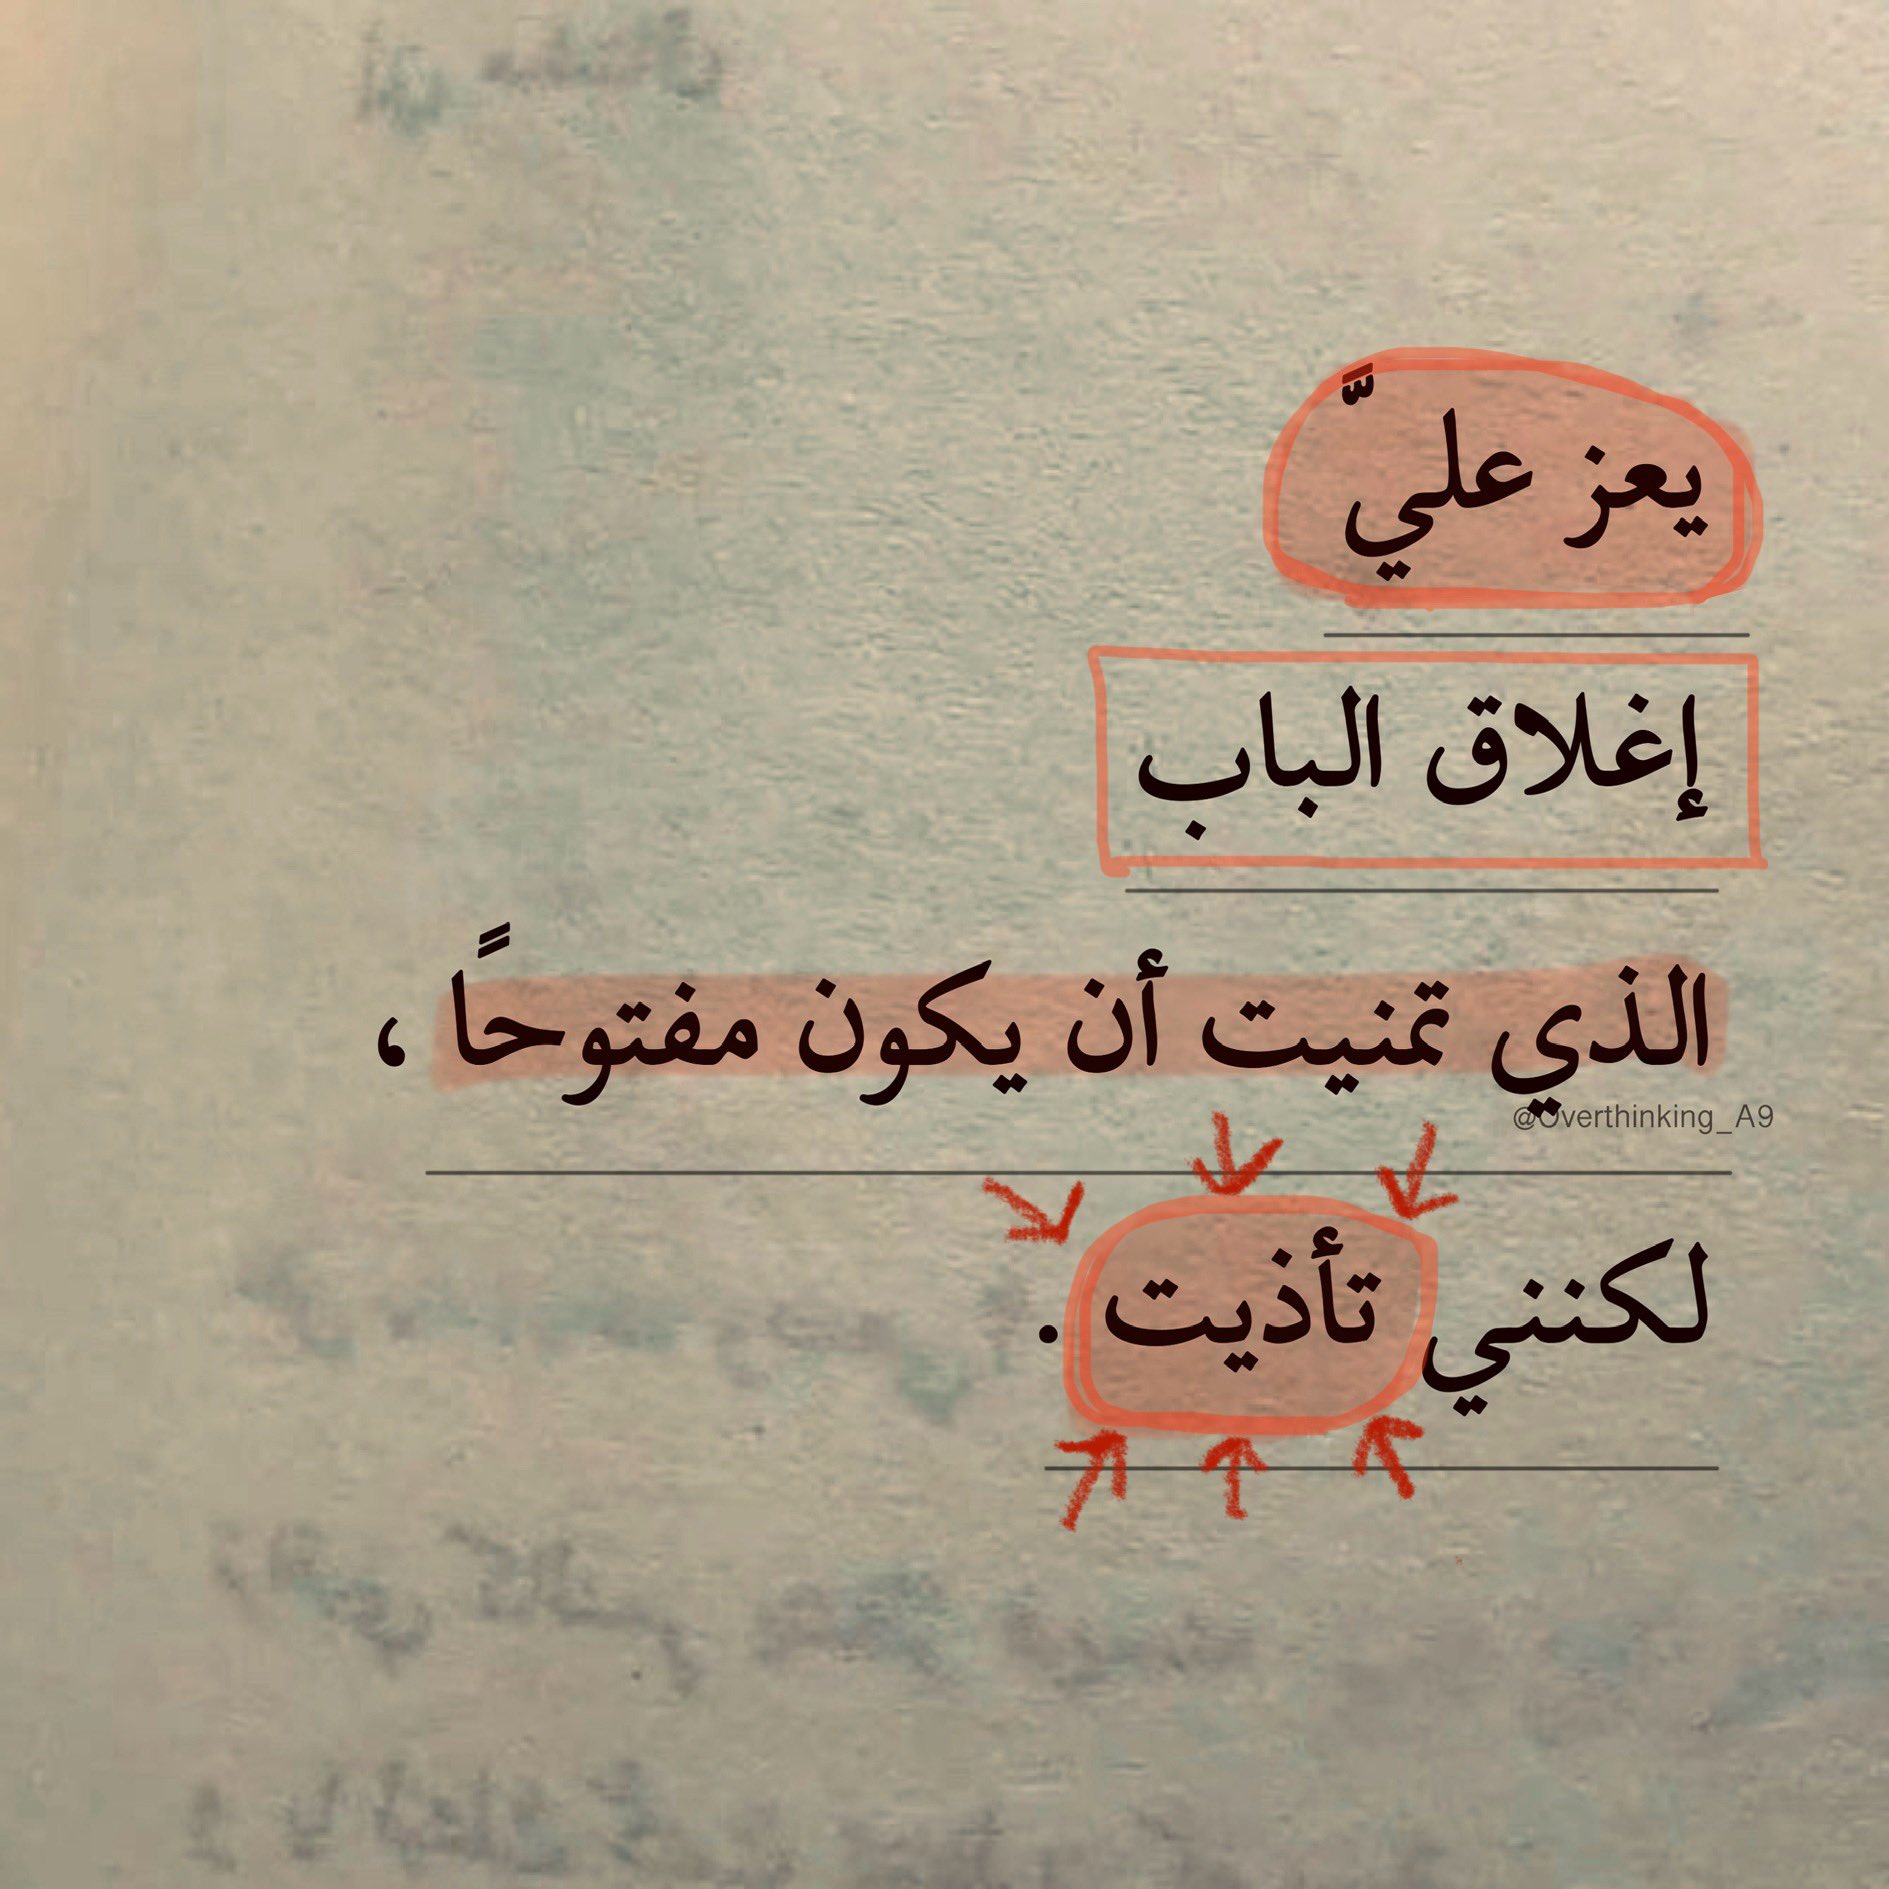 يعز عليَّ
إغلاق الباب
الذي تمنيت أن يكون مفتوحاً ،
@Overthinking_A9
لكنني تأذيت .